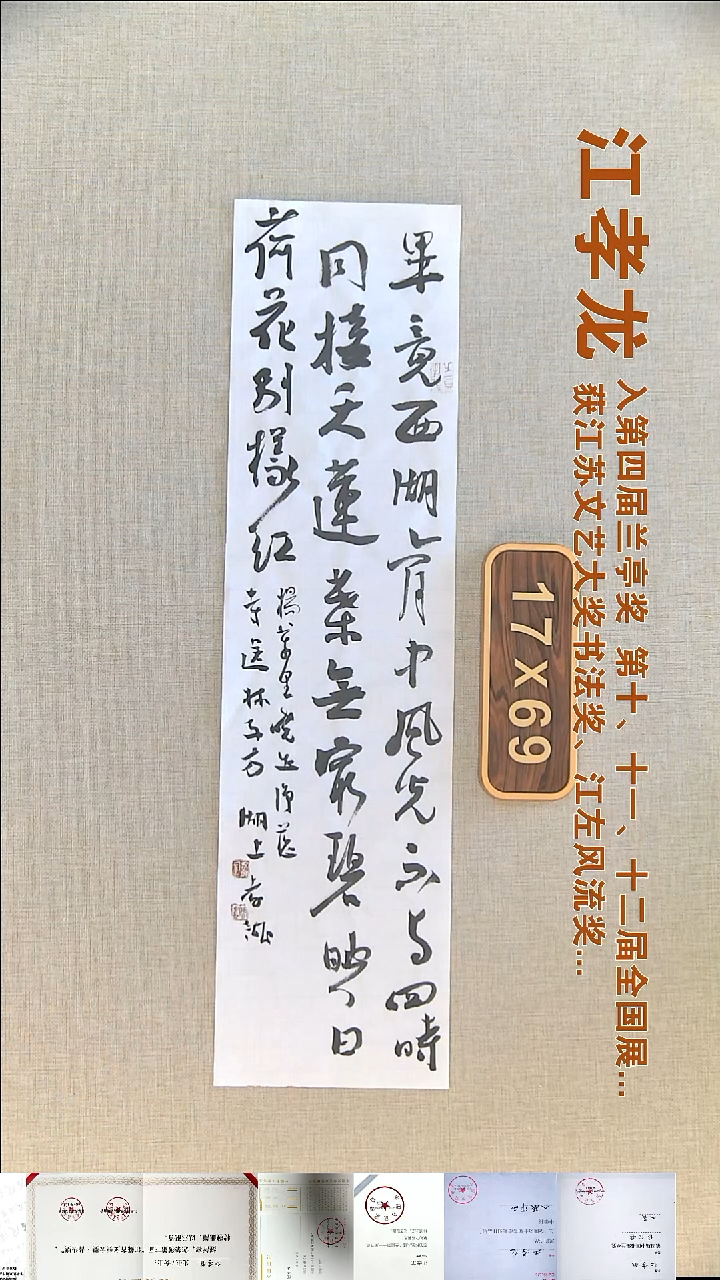 江孝龙
入第四届兰亭奖 第十、十一、十二届全国展...
获江苏文艺大奖书法奖、江左风流奖...
17x69
畢竟西湖六月中風光不与四時
同接天蓮葉無窮碧映日
荷花別樣紅
楊萬里曉出淨慈
寺送林子方 湖上孝龍